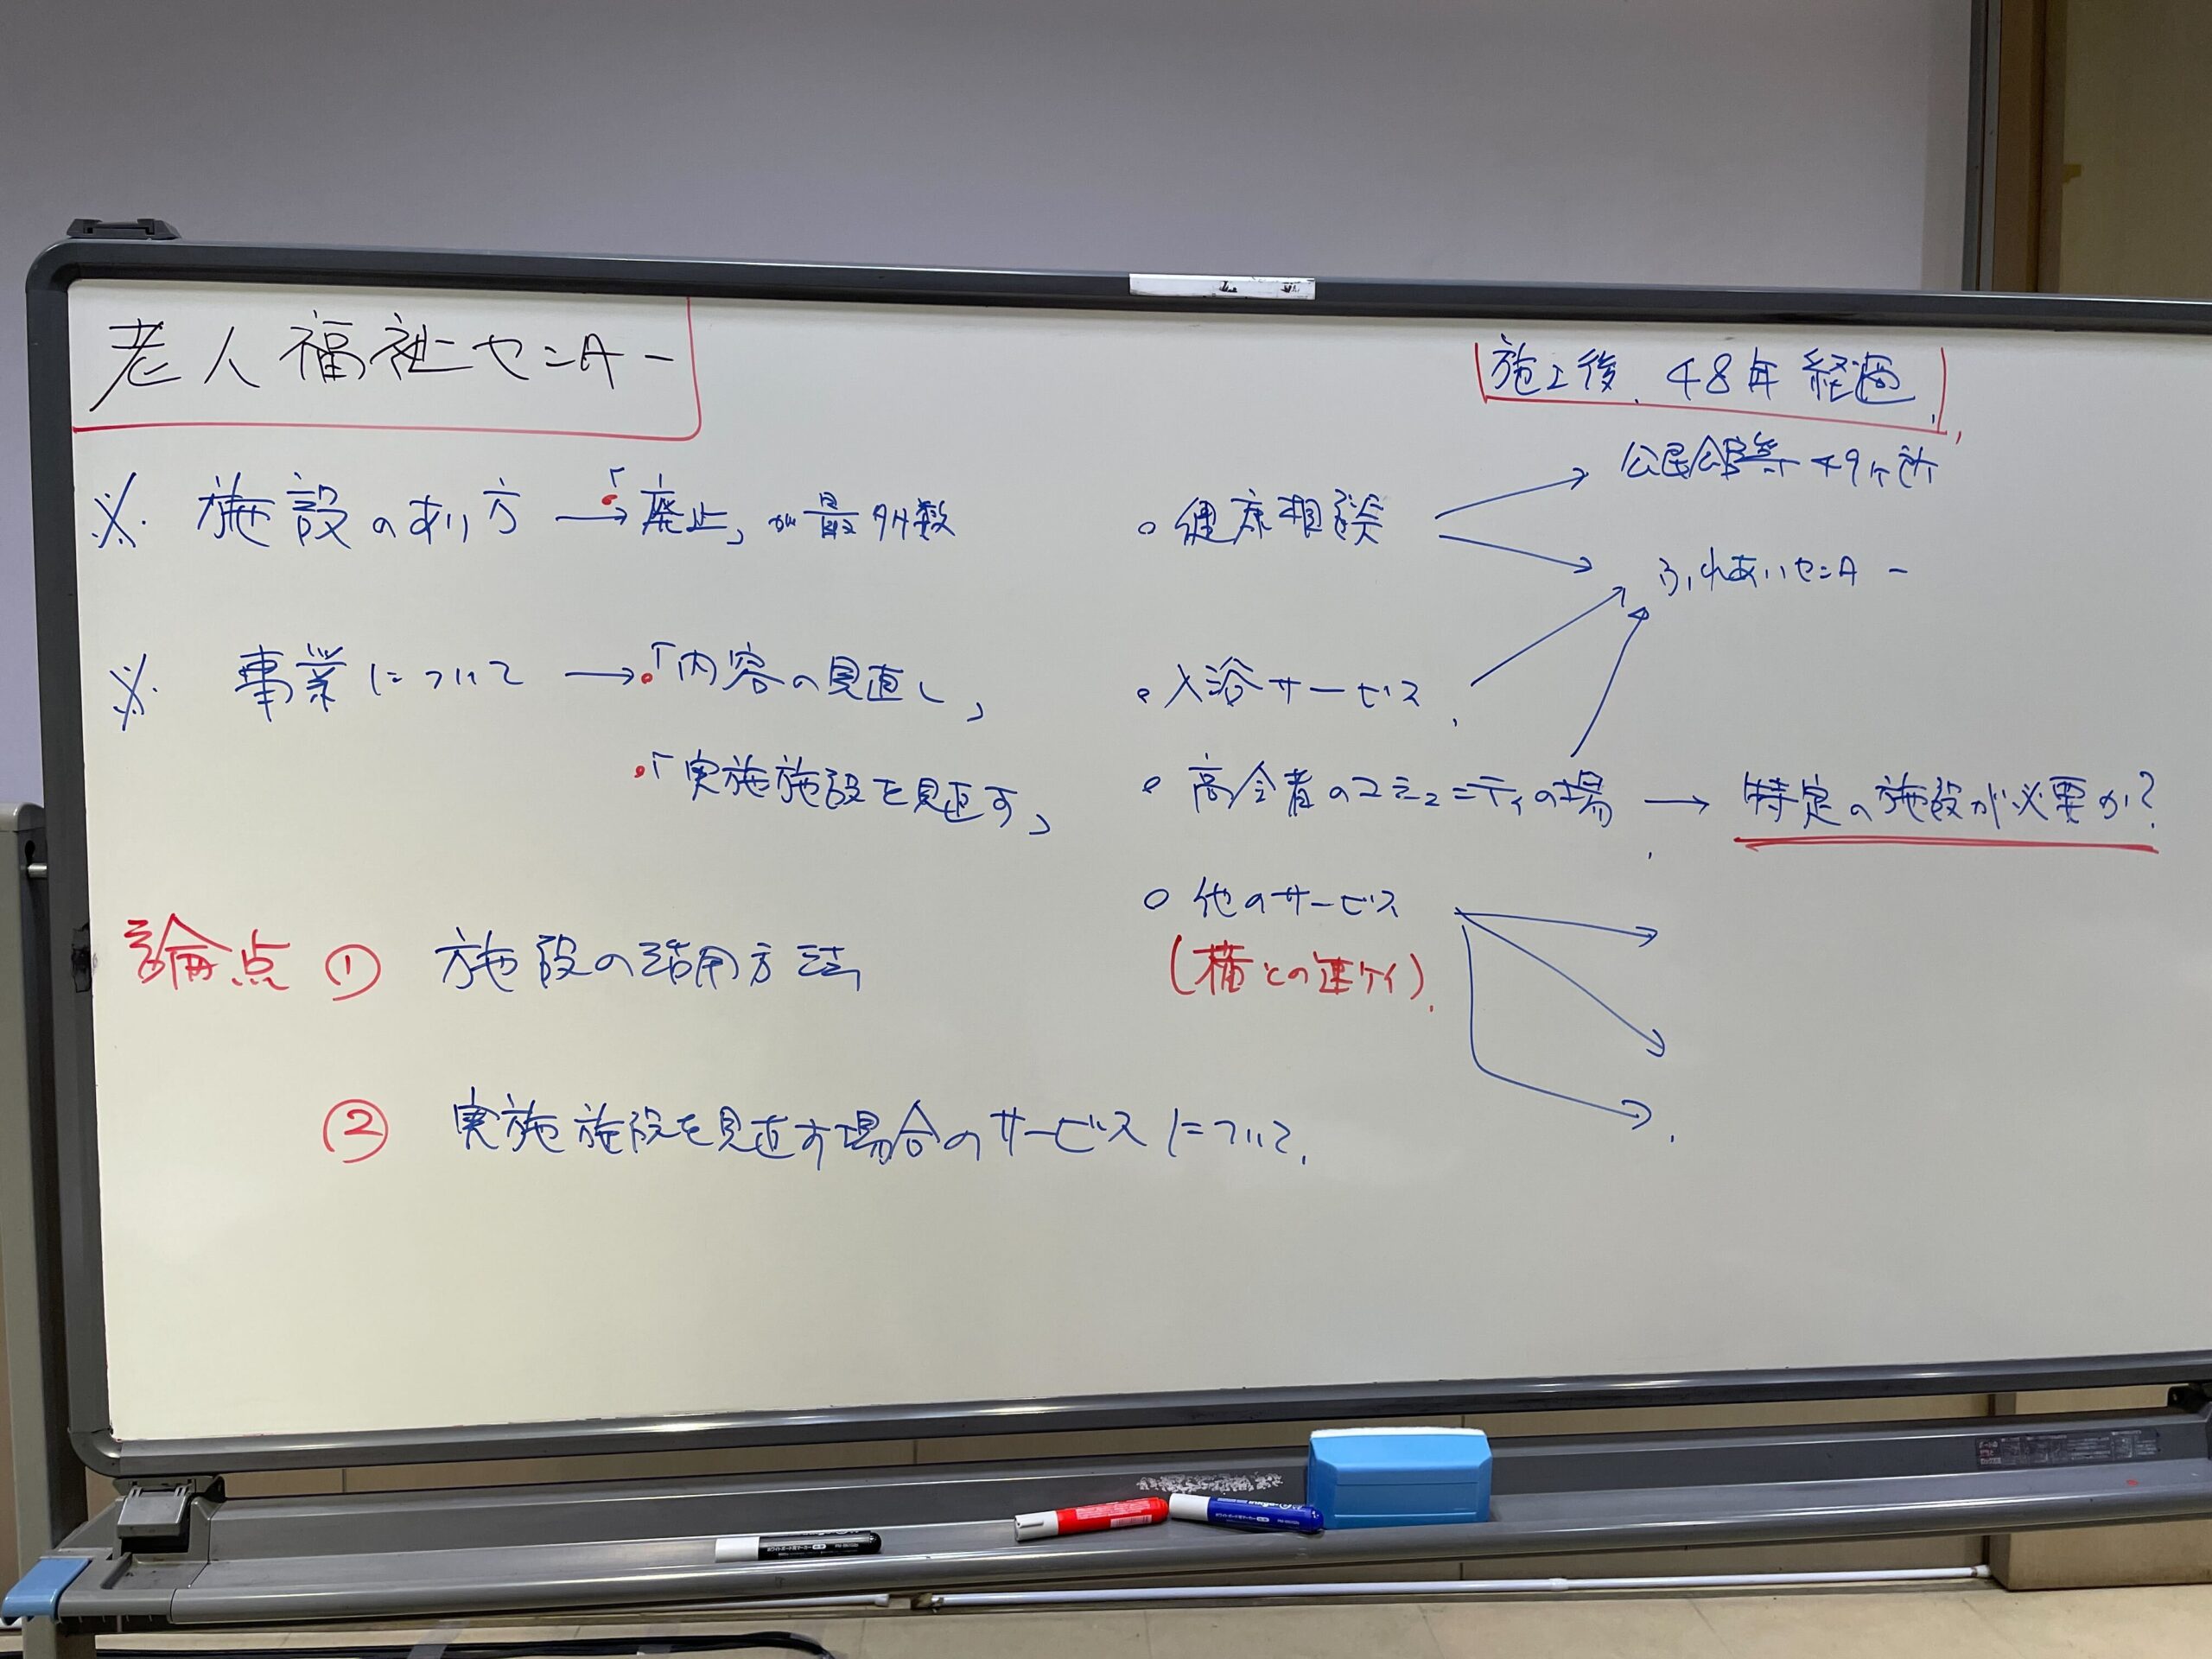 老人福祉センター
施工後、48年経過
※ 施設のあり方 → 「廃止」が最多数
※ 事業について → 「内容の見直し」
「実施施設を見直す」
論点 ① 施設の活用方法
② 実施施設を見直す場合のサービスについて.
○ 健康相談
公民館等 49ヶ所
ふれあいセンター
○ 入浴サービス
○ 高令者のコミュニティの場 → 特定の施設が必要か?
○ 他のサービス
(横との連ケイ)